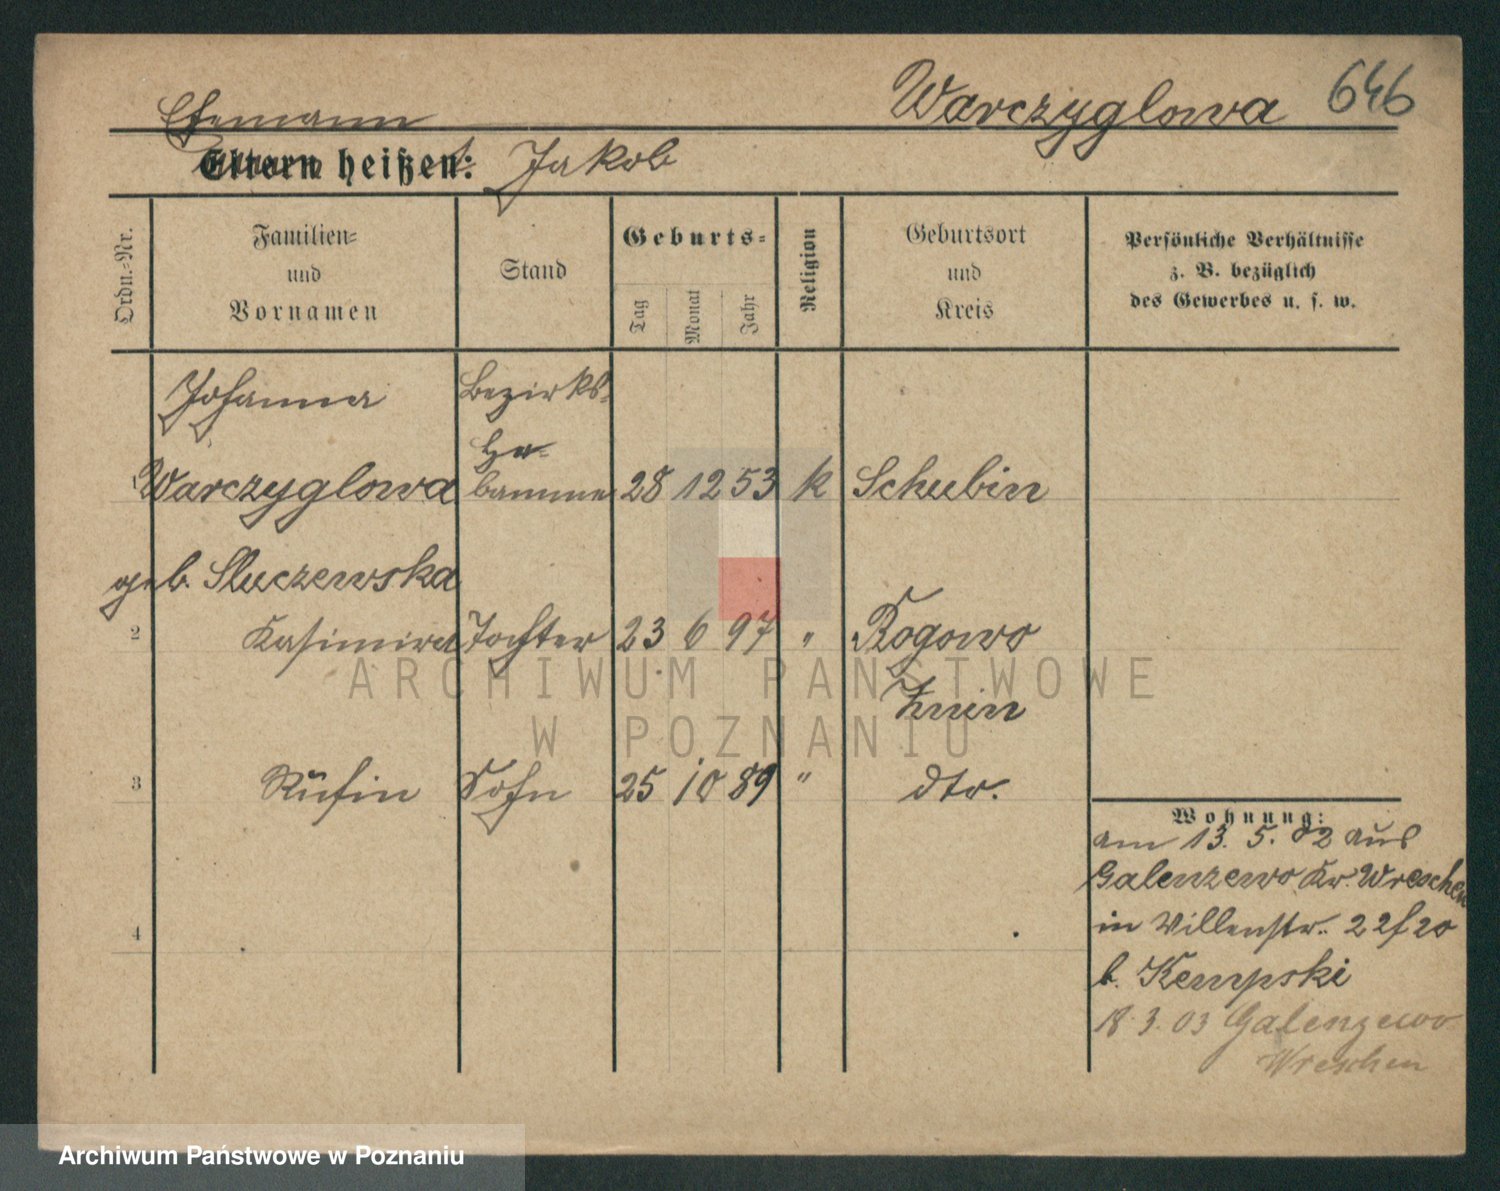 Warczyglowa 646
Ehemann
Eltern heißen: Jakob
Ordn.-Nr.
Familien-
und
Vornamen
Stand
Geburts-
Tag
Monat
Jahr
Religion
Geburtsort
und
Kreis
Persönliche Verhältnisse
z. B. bezüglich
des Gewerbes u. s. w.
Johanna Bezirks-
He-
Warczyglowa bamme 28 12 53 k Schubin
geb. Sluczewska
2 Kasimira Tochter 23 6 97 " Rogowo
Znin
3 Rufin Sohn 25 10 89 " dto.
4
Wohnung:
am 13. 5. 02 aus
Galenzewo Kr. Wreschen
in Villenstr. 22f 20
b. Kempski
18. 3. 03 Galenzewo
Wreschen
ARCHIWUM PAŃSTWOWE
W POZNANIU
Archiwum Państwowe w Poznaniu